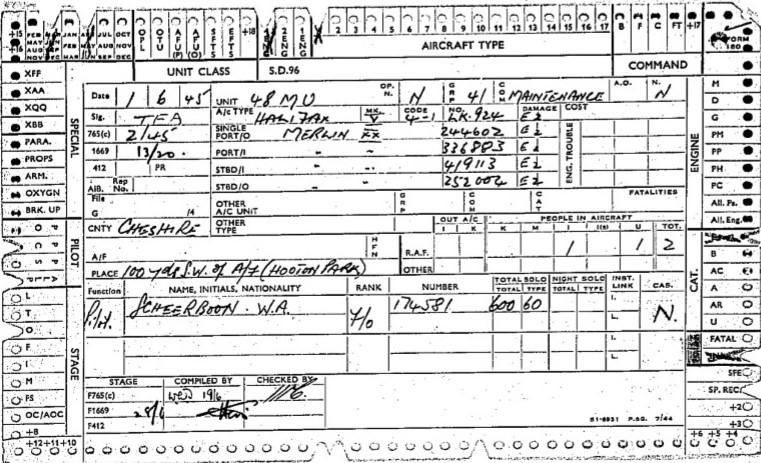 +15 FEB JAN JUL OCT OPL OTU AFU (P) AFU (O) SFTS EFTS +18 4 ENG 2 ENG 1 ENG 2 3 4 5 6 7 8 9 10 11 12 13 14 15 16 17 B F C FT +17
MAY MAR AUG NOV
AUG FORM
NOV SEP DEC AIRCRAFT TYPE 180
UNIT CLASS S.D.96 COMMAND
XFF
XAA
XQQ
XBB
PARA.
PROPS
ARM.
OXYGN
BRK. UP
SPECIAL
Date 1 6 45 UNIT 48 MU OP. N. N GRP 41 COM MAINTENANCE A.O. N. N
Sig. TEA A/c TYPE HALIFAX MK. V CODE 4-1 NO. LK.924 DAMAGE E2 COST
765(c) 2/45 SINGLE PORT/O MERLIN XX 244602 E2
1669 13/20. PORT/I " " 336883 E2 ENG. TROUBLE
412 PR STBD/I " " 419113 E2
AIB. Rep No. STBD/O " " 252004 E2
File G 14 OTHER A/C UNIT GRP COM CAT FATALITIES
CNTY CHESHIRE OTHER TYPE OUT A/C I K PEOPLE IN AIRCRAFT K M I I(s) U TOT.
A/F HFN R.A.F. 1 1 2
PLACE 100 yds S.W. of A/F (HOOTON PARK) OTHER
Function NAME, INITIALS, NATIONALITY RANK NUMBER TOTAL SOLO TOTAL TYPE NIGHT SOLO TOTAL TYPE INST. LINK CAS.
Pilot. SCHEERBOON. W.A. F/O 174581 600 60 I. L. N.
I.
L.
STAGE COMPILED BY CHECKED BY
F765(c) 19/6
F1669 28/6
F412
51-8931 P.&G. 7/44
PILOT
L
T
O
F
I
M
FS
OC/AOC
+8
+12 +11 +10
STAGE
M
D
G
PM
PP
PH
PC
All. Pa.
All. Eng.
ENGINE
B
AC
A
AR
U
CAT.
FATAL
SFE
SP. REC.
+2
+3
+6 +5 +4